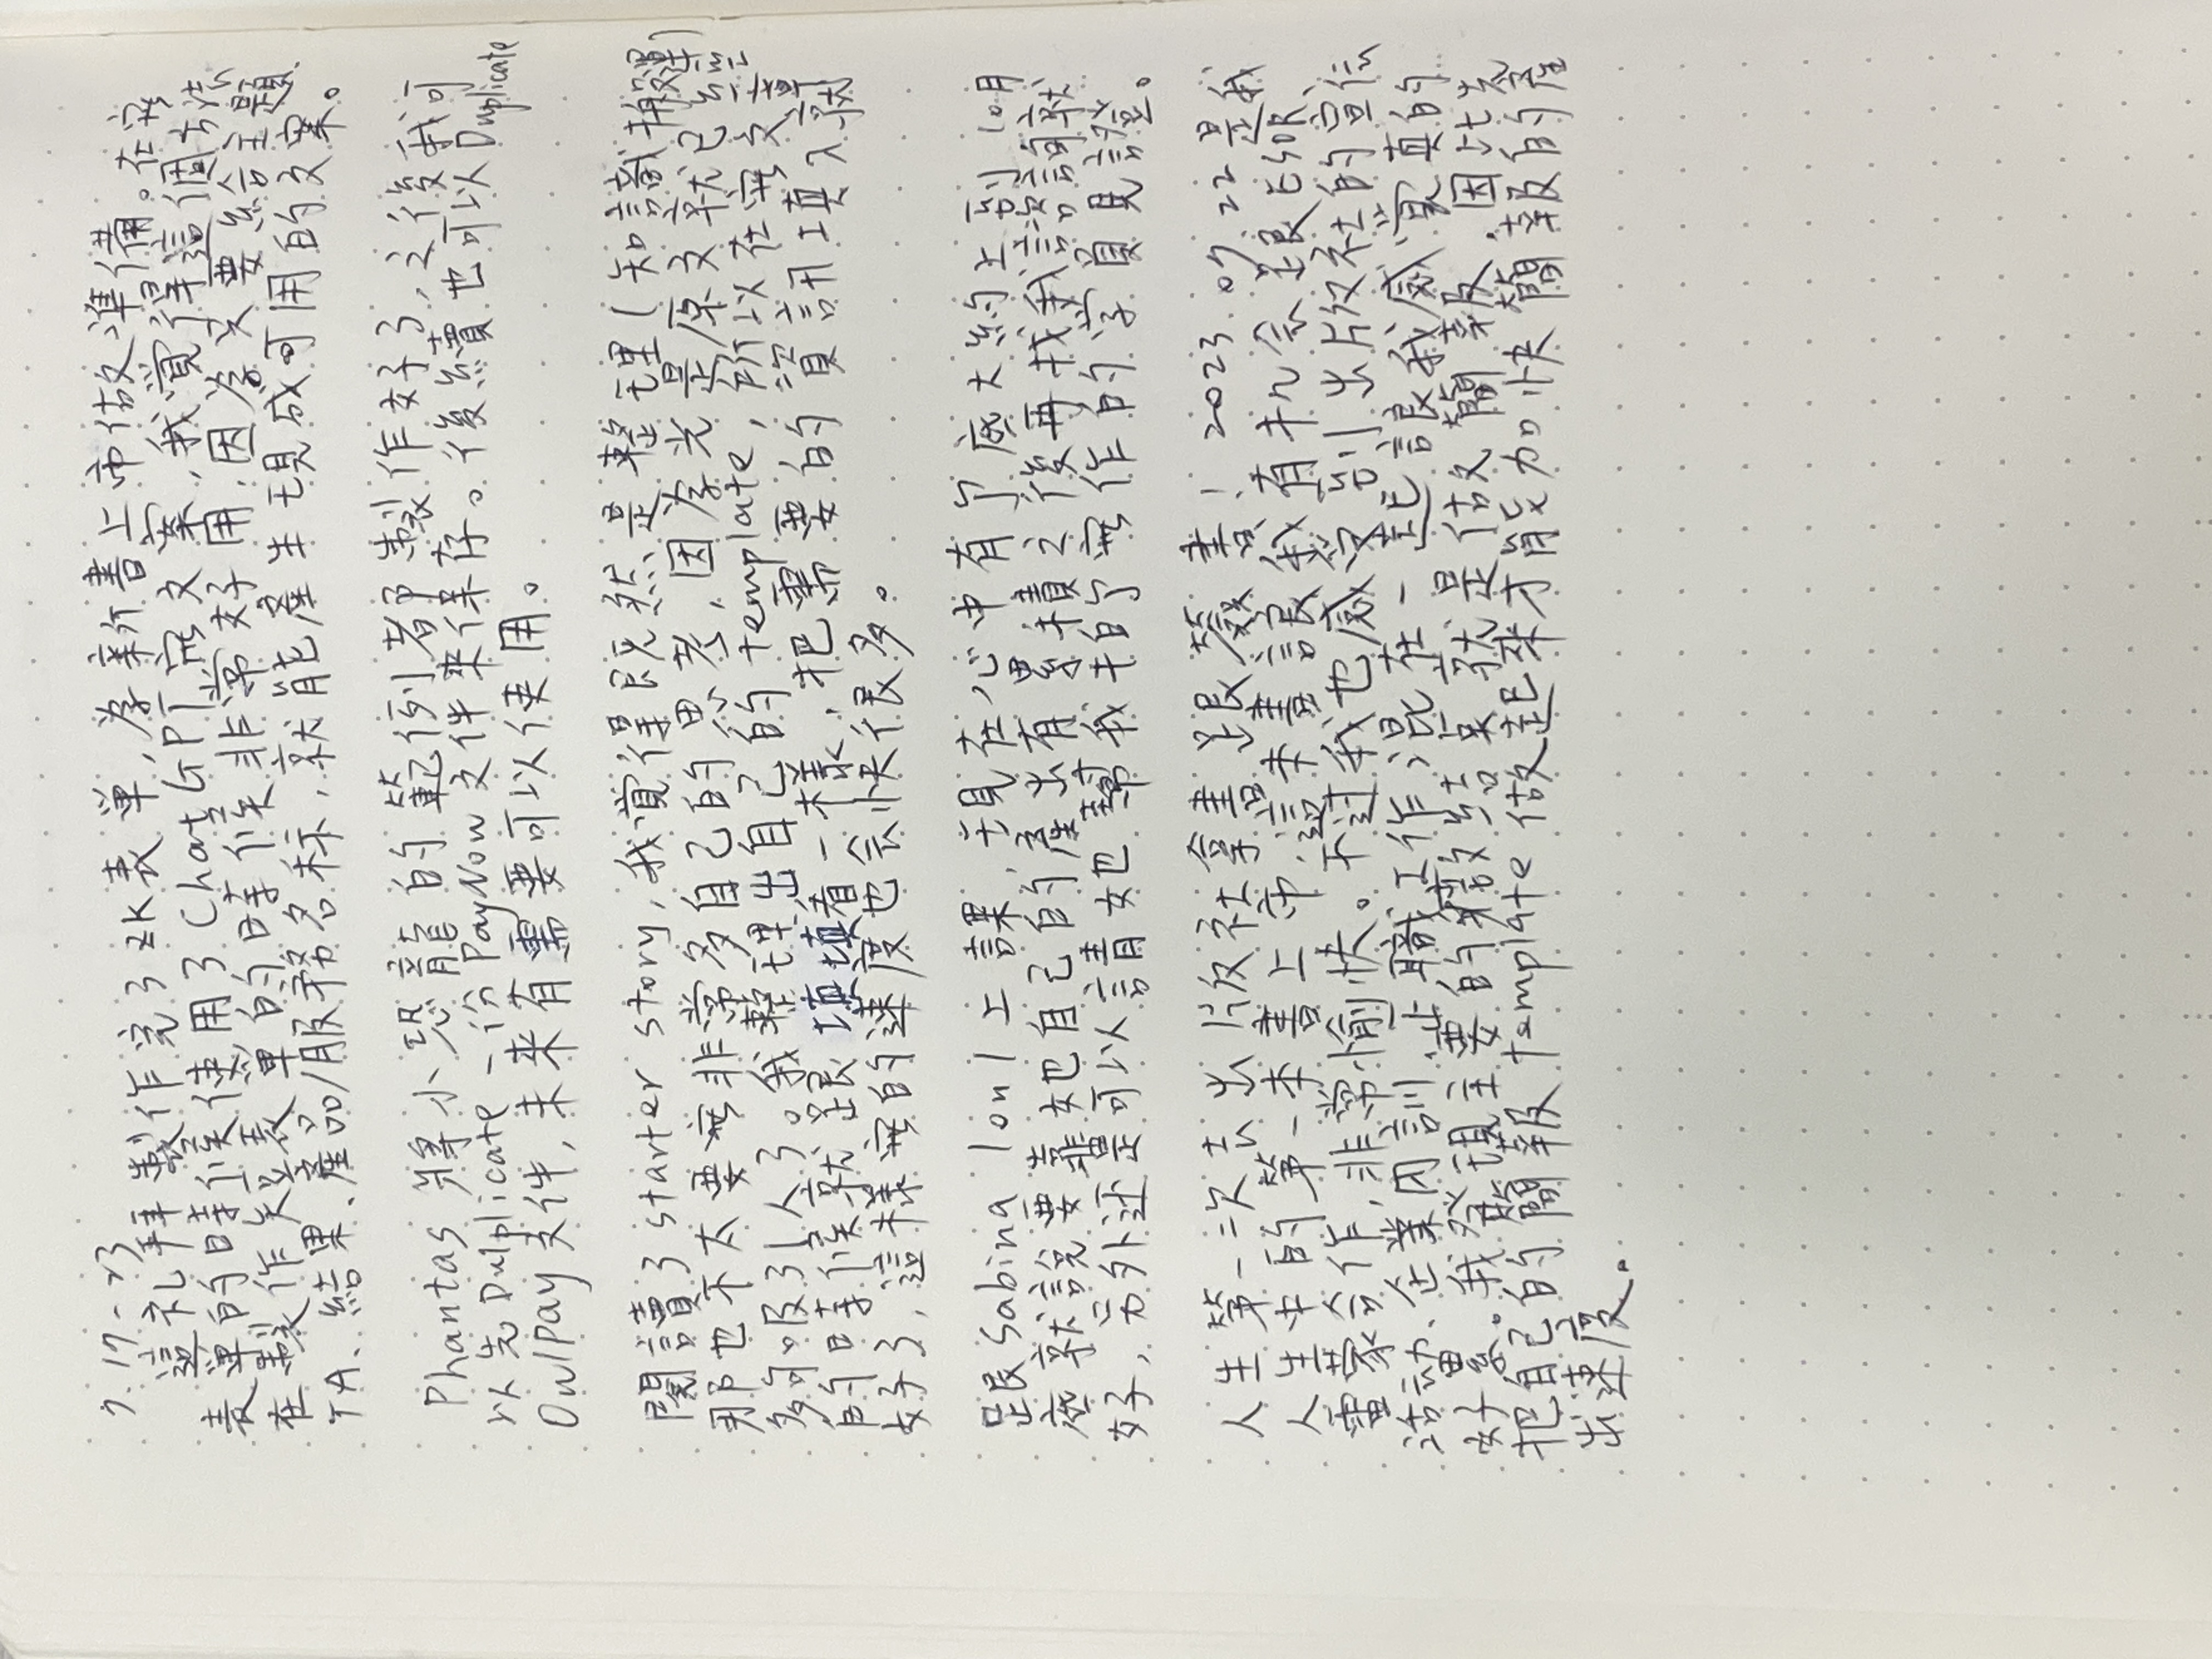 7.17-23
這礼拜製作完了ZK表單,為新書上市做準備。在寫
表單的時候使用了ChatGPT寫文案,我覺得這個方法
在製作短表單的時候非常好用,因為只要給主題、
TA、結果、產品/服務名称,就能產生現成可用的文案。
Phantas 將小恐龍的範例都製作好了,之後我可
以先Dulplicate一份PayNow文件來保存。後續也可以Duplicate
OwlPay文件,未來有需要可以使用。
閱讀了starter story,我覺得既然是整理(知識搬運)
那也不太要寫非常多自己的思考,因為光是原文就已經
多夠吸引人了。我整理出自己的template,所以在寫文章
的時候就跟填填看一樣,把需要的資訊填入就
好了,這樣寫的速度也会快很多。
跟Sabina 1on1上課,現在心中有了底大約上到10月
底就說要靠她自己的產出有累積之後再找我諮詢就
好,另外还是可以請她幫我丰的寫作的学員見證。
人生第一次去出版社拿書跟簽書!2023.07.22是我
人生中的第一本書上市,這本書讓我有机会跟ESOR、
雷蒙合作,非常愉快。不过我也感受到出版社的宣伝
活動、企業內訓、正職工作混在一起讓我感覺真的
好累。我發現主要的癥結點就是做簡報,因此先
把自己的簡報template做起來才能加快簡報的產
出速度。